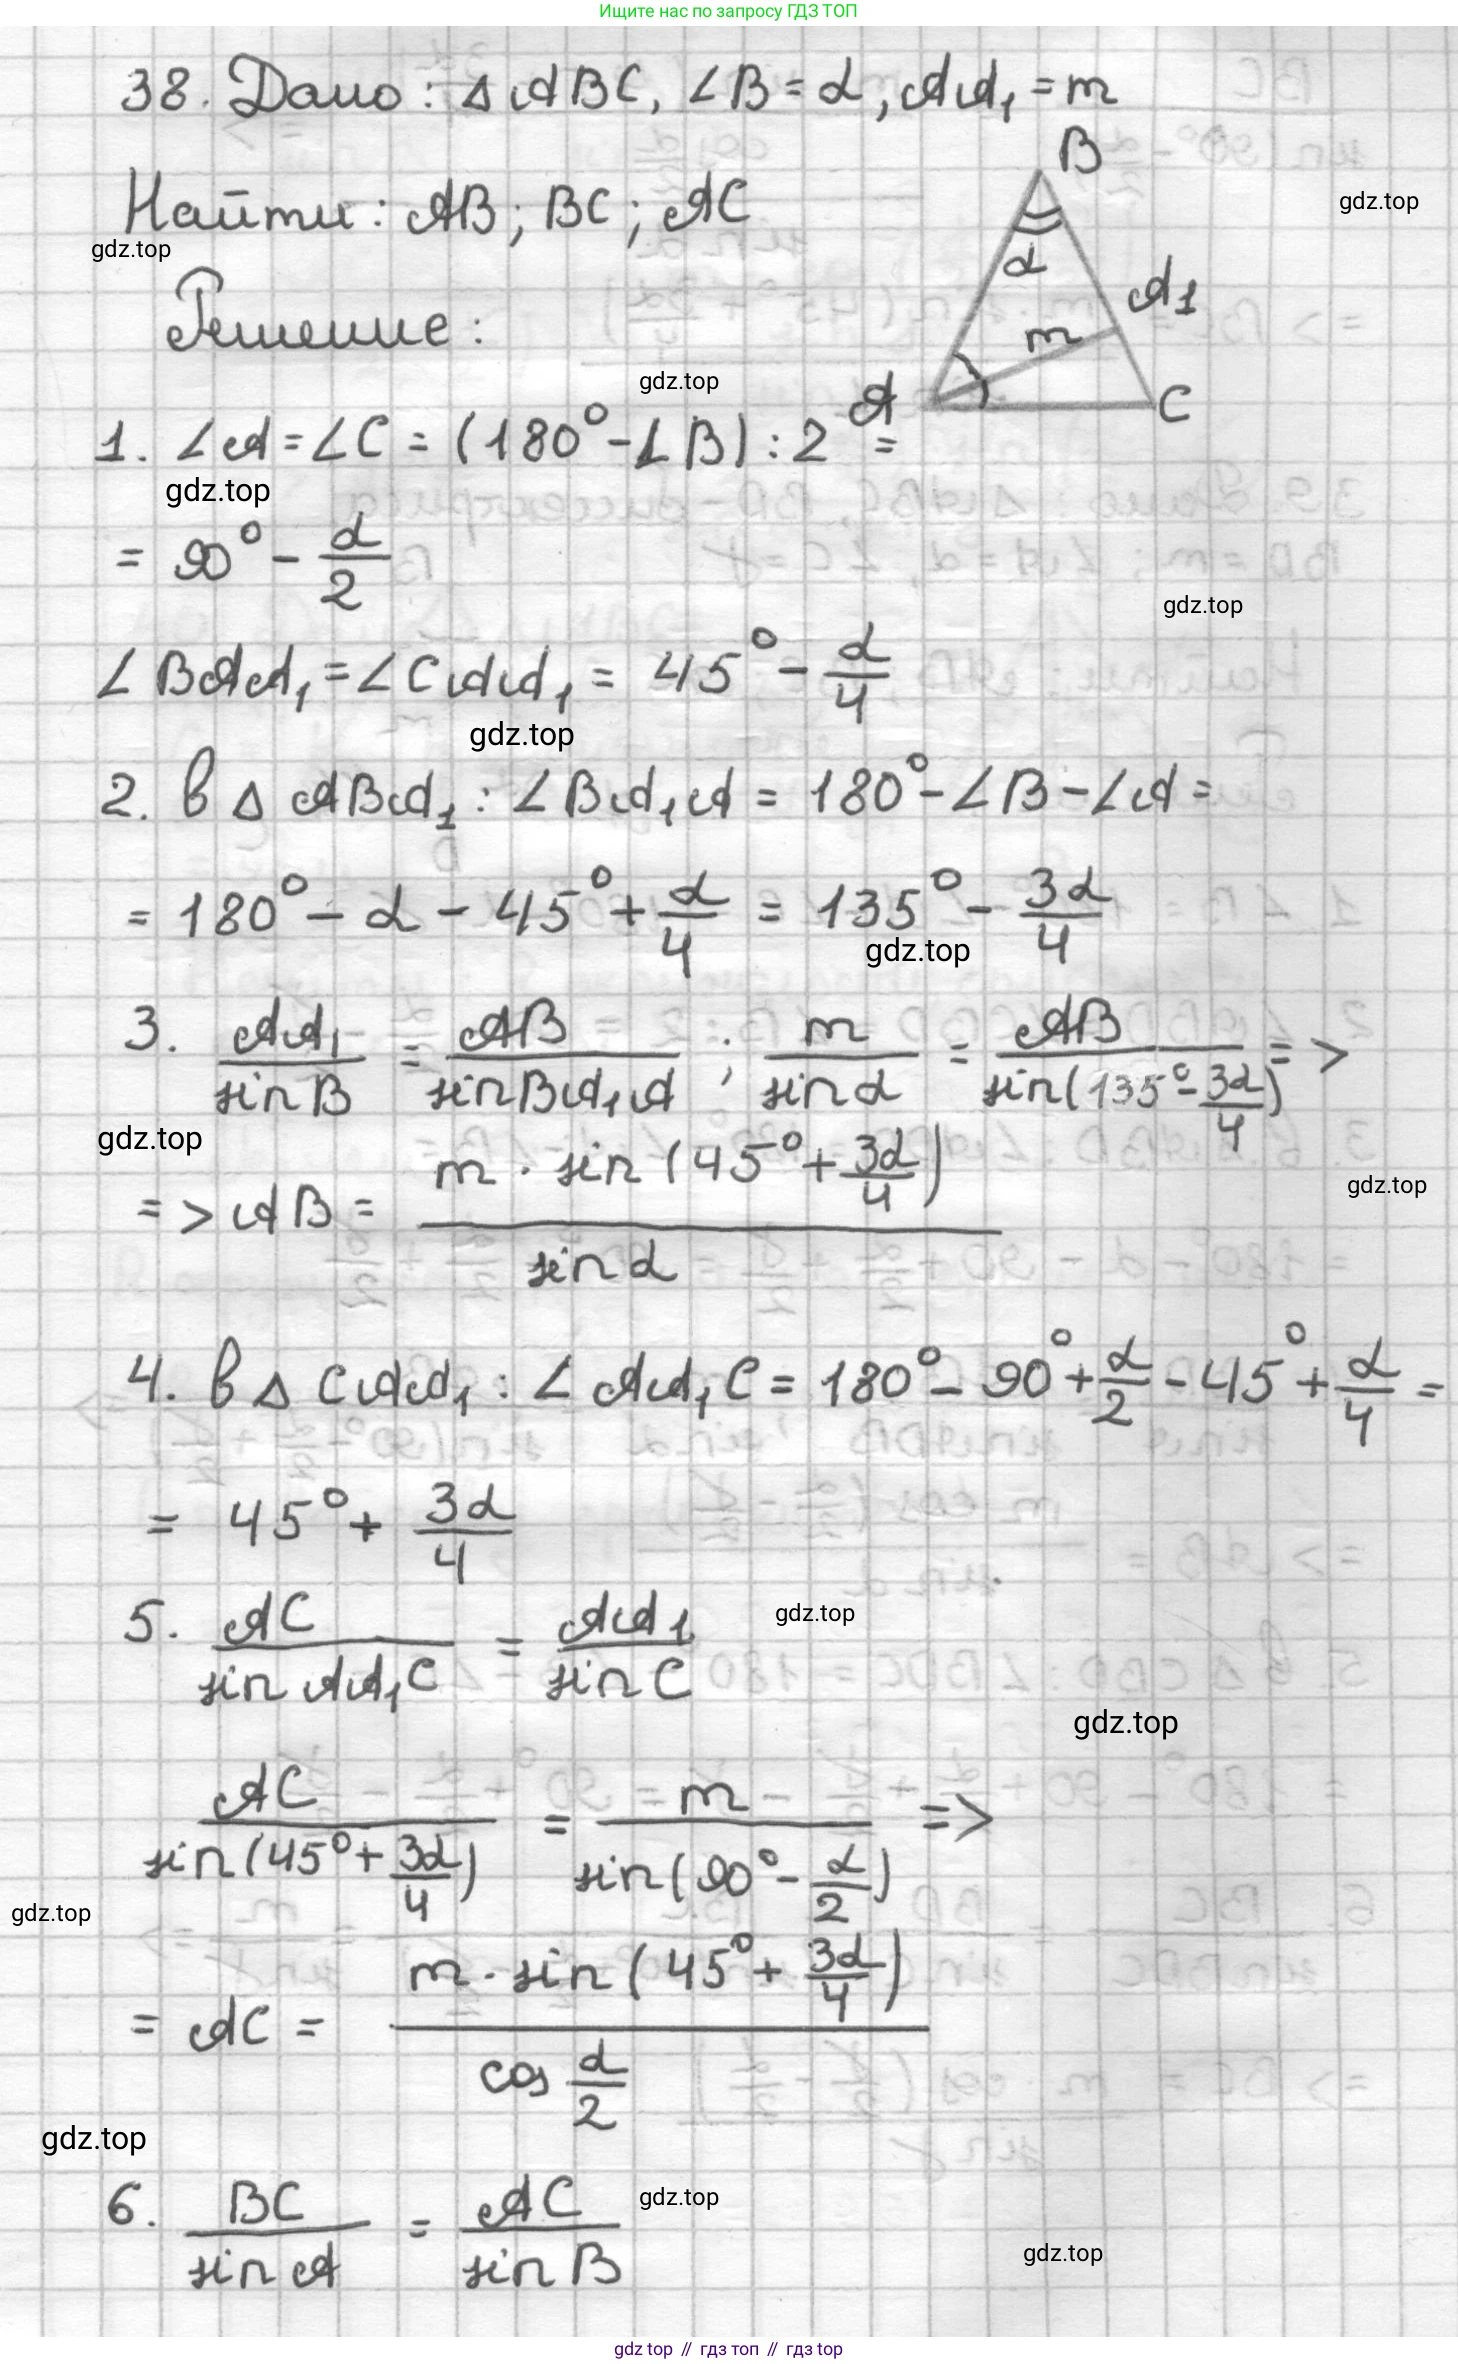 Ищите нас по запросу ГДЗ ТОП
38. Дано: △ABC, ∠B = α, AA₁ = m
B
Найти: AB; BC; AC
gdz.top
gdz.top
α
A₁
Решение:
m
gdz.top
A
C
1. ∠A = ∠C = (180° - ∠B) : 2 =
gdz.top
= 90° - α/2
gdz.top
∠BAA₁ = ∠CAA₁ = 45° - α/4
gdz.top
2. В △ ABA₁ : ∠BA₁A = 180° - ∠B - ∠A =
= 180° - α - 45° + α/4 = 135° - 3α/4
gdz.top
3. AA₁/sin B = AB/sin BA₁A ; m/sin α = AB/sin(135° - 3α/4) =>
gdz.top
=> AB = m · sin(45° + 3α/4)/sin α
gdz.top
4. В △ CAA₁ : ∠AA₁C = 180° - 90° + α/2 - 45° + α/4 =
= 45° + 3α/4
5. AC/sin AA₁C = AA₁/sin C
gdz.top
gdz.top
AC/sin(45° + 3α/4) = m/sin(90° - α/2) =>
gdz.top
= AC = m · sin(45° + 3α/4)/cos α/2
gdz.top
6. BC/sin A = AC/sin B
gdz.top
gdz.top
gdz top // гдз топ // гдз top